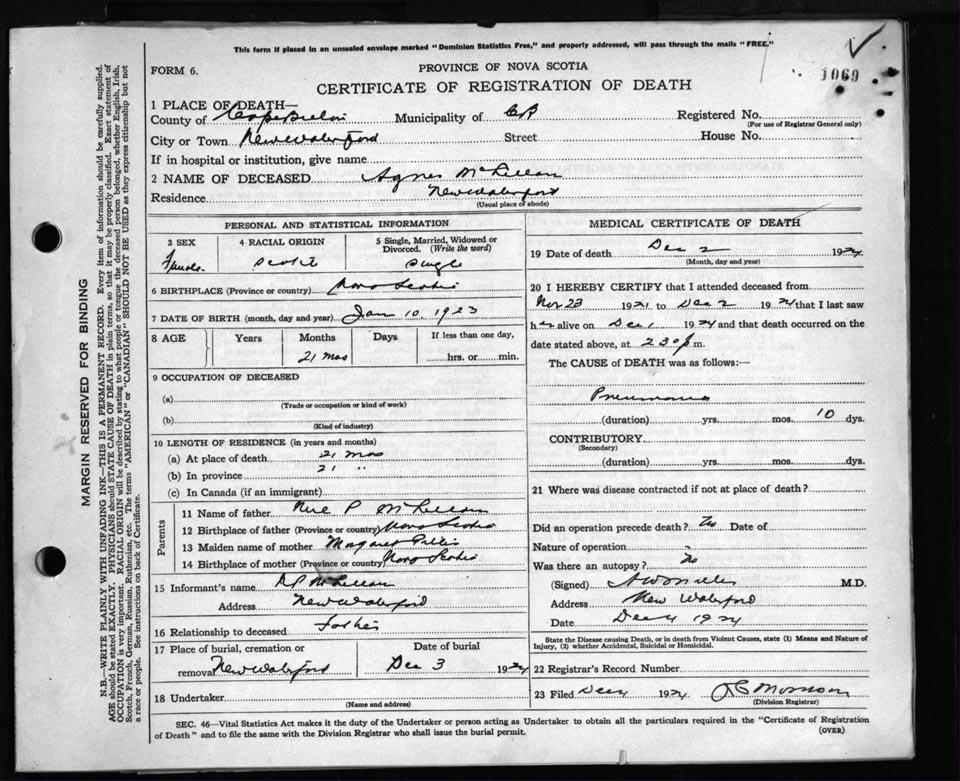 This form if placed in an unsealed envelope marked "Dominion Statistics Free," and properly addressed, will pass through the mails "FREE."
FORM 6.
PROVINCE OF NOVA SCOTIA
1069
CERTIFICATE OF REGISTRATION OF DEATH
1 PLACE OF DEATH—
County of Cape Breton Municipality of CB Registered No.
(For use of Registrar General only)
City or Town New Waterford Street House No.
If in hospital or institution, give name
2 NAME OF DECEASED Agnes McLellan
Residence New Waterford
(Usual place of abode)
PERSONAL AND STATISTICAL INFORMATION
3 SEX 4 RACIAL ORIGIN 5 Single, Married, Widowed or Divorced. (Write the word)
Female Scotch Single
6 BIRTHPLACE (Province or country) Nova Scotia
7 DATE OF BIRTH (month, day and year) Jan 10, 1923
8 AGE Years Months Days If less than one day,
21 mos hrs. or min.
9 OCCUPATION OF DECEASED
(a)
(Trade or occupation or kind of work)
(b)
(Kind of industry)
10 LENGTH OF RESIDENCE (in years and months)
(a) At place of death 21 mos
(b) In province 21 "
(c) In Canada (if an immigrant)
Parents
11 Name of father Neil P McLellan
12 Birthplace of father (Province or country) Nova Scotia
13 Maiden name of mother Margaret
14 Birthplace of mother (Province or country) Nova Scotia
15 Informant's name P McLellan
Address New Waterford
16 Relationship to deceased father
17 Place of burial, cremation or removal New Waterford Date of burial Dec 3 1924
18 Undertaker
(Name and address)
MEDICAL CERTIFICATE OF DEATH
19 Date of death Dec 2 1924
(Month, day and year)
20 I HEREBY CERTIFY that I attended deceased from
Nov 23 192 to Dec 2 1924 that I last saw
her alive on Dec 1 1924 and that death occurred on the
date stated above, at 230 p m.
The CAUSE of DEATH was as follows:—
Pneumonia
(duration) yrs. mos. 10 dys.
CONTRIBUTORY
(Secondary)
(duration) yrs. mos. dys.
21 Where was disease contracted if not at place of death?
Did an operation precede death? No Date of
Nature of operation
Was there an autopsy? No
(Signed) Miller M.D.
Address New Waterford
Date Dec 4 1924
State the Disease causing Death, or in death from Violent Causes, state (1) Means and Nature of Injury, (2) whether Accidental, Suicidal or Homicidal.
22 Registrar's Record Number
23 Filed Dec 4 1924 Morrison
(Division Registrar)
SEC. 46—Vital Statistics Act makes it the duty of the Undertaker or person acting as Undertaker to obtain all the particulars required in the "Certificate of Registration
of Death" and to file the same with the Division Registrar who shall issue the burial permit.
(OVER)
MARGIN RESERVED FOR BINDING
N.B.—WRITE PLAINLY WITH UNFADING INK—THIS IS A PERMANENT RECORD. Every item of information should be carefully supplied.
AGE should be stated EXACTLY. PHYSICIANS should STATE CAUSE OF DEATH in plain terms, so that it may be properly classified. Exact statement of
OCCUPATION is very important. RACIAL ORIGIN will be described by stating to what people or tongue the deceased person belonged, whether English, Irish,
Scotch, French, German, Russian, Ruthenian, etc. The terms "AMERICAN" or "CANADIAN" SHOULD NOT BE USED as they express citizenship but not
a race or people. See instructions on back of Certificate.